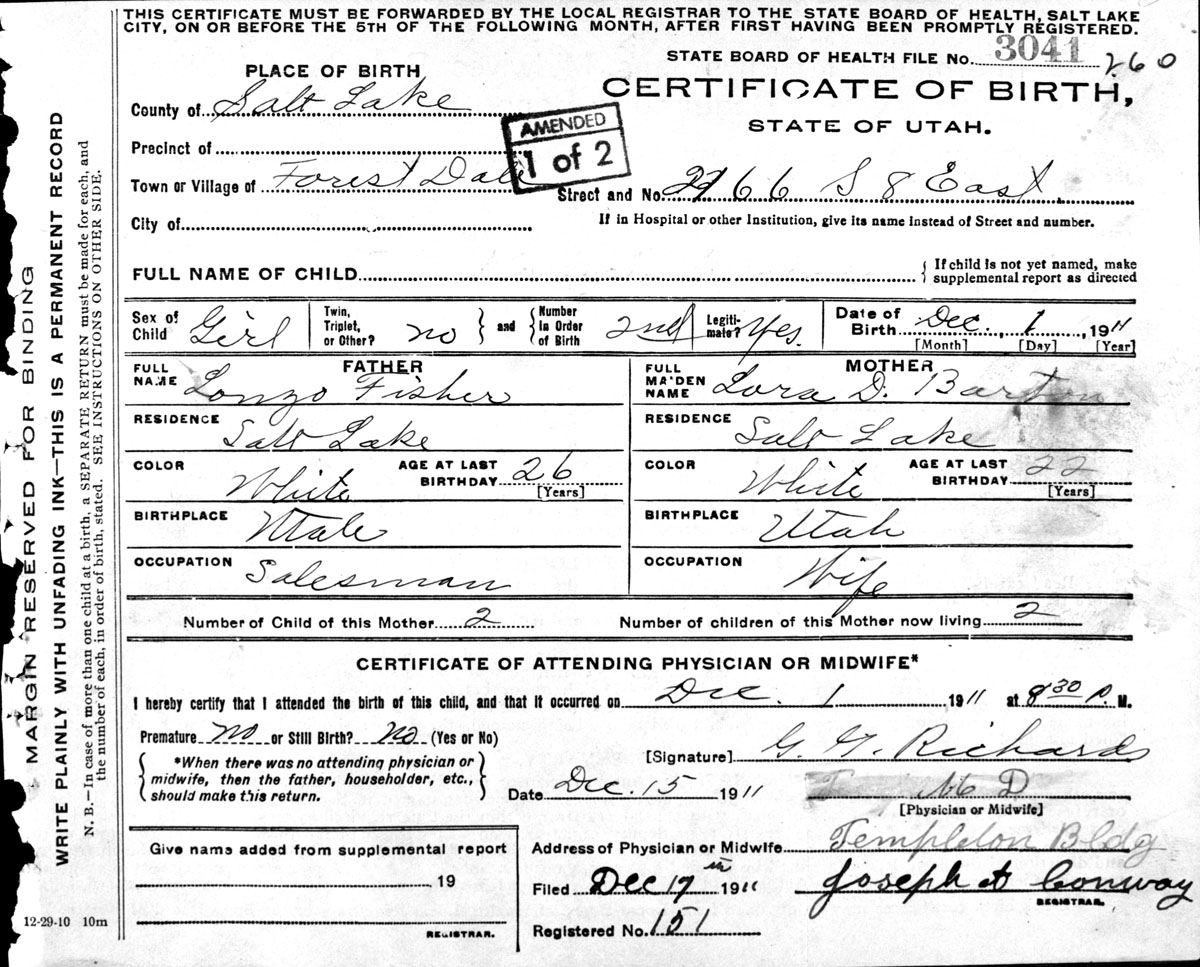 THIS CERTIFICATE MUST BE FORWARDED BY THE LOCAL REGISTRAR TO THE STATE BOARD OF HEALTH, SALT LAKE
CITY, ON OR BEFORE THE 5TH OF THE FOLLOWING MONTH, AFTER FIRST HAVING BEEN PROMPTLY REGISTERED.
STATE BOARD OF HEALTH FILE No. 3041 260
PLACE OF BIRTH
CERTIFICATE OF BIRTH,
STATE OF UTAH.
County of Salt Lake
AMENDED
1 of 2
Precinct of
Town or Village of Forest Dale
Street and No. 2766 S 8 East
City of
If in Hospital or other Institution, give its name instead of Street and number.
FULL NAME OF CHILD
{ If child is not yet named, make
supplemental report as directed
Sex of Child Girl
Twin, Triplet, or Other? no } and { Number in Order of Birth 2nd
Legiti-mate? Yes.
Date of Birth Dec. 1, 1911
[Month] [Day] [Year]
FATHER
FULL NAME Lonzo Fisher
MOTHER
FULL MAIDEN NAME Lora D. Barton
RESIDENCE Salt Lake
RESIDENCE Salt Lake
COLOR White
AGE AT LAST BIRTHDAY 26
[Years]
COLOR White
AGE AT LAST BIRTHDAY 22
[Years]
BIRTHPLACE Utah
BIRTHPLACE Utah
OCCUPATION Salesman
OCCUPATION Wife
Number of Child of this Mother 2
Number of children of this Mother now living 2
CERTIFICATE OF ATTENDING PHYSICIAN OR MIDWIFE*
I hereby certify that I attended the birth of this child, and that it occurred on Dec. 1, 1911 at 8 30 P. M.
Premature no or Still Birth? no (Yes or No)
*When there was no attending physician or
midwife, then the father, householder, etc.,
should make this return.
[Signature] G. G. Richards
Date Dec. 15 1911
M D
[Physician or Midwife]
Give name added from supplemental report
19
REGISTRAR.
12-29-10 10m
Address of Physician or Midwife Templeton Bldg
Filed Dec 17th 1911
Joseph A Conway
REGISTRAR.
Registered No. 151
MARGIN RESERVED FOR BINDING
WRITE PLAINLY WITH UNFADING INK—THIS IS A PERMANENT RECORD
N. B.—In case of more than one child at a birth, a SEPARATE RETURN must be made for each, and
the number of each, in order of birth, stated. SEE INSTRUCTIONS ON OTHER SIDE.